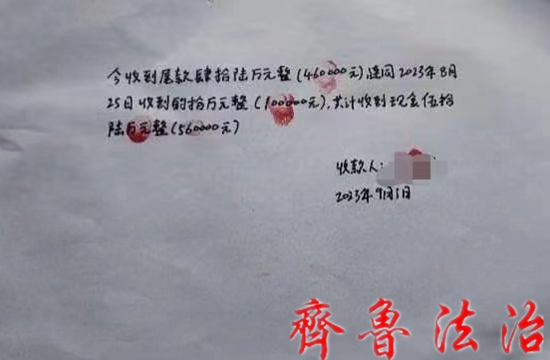 今收到尾款肆拾陆万元整(460000元),连同2023年8月
25日收到的拾万元整(100000元),共计收到现金伍拾
陆万元整(560000元)
收款人:
2023年9月1日
齊魯法治